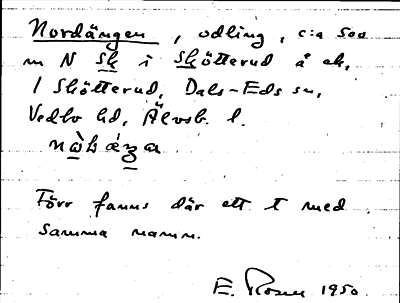 Nordängen, odling, c:a 500
m N Sk i Skötterud å ek.
1 Skötterud, Dals-Eds sn,
Vedbo hd, Älvsb. l.

Förr fanns där ett t med
samma namn.
E. Rosell 1950